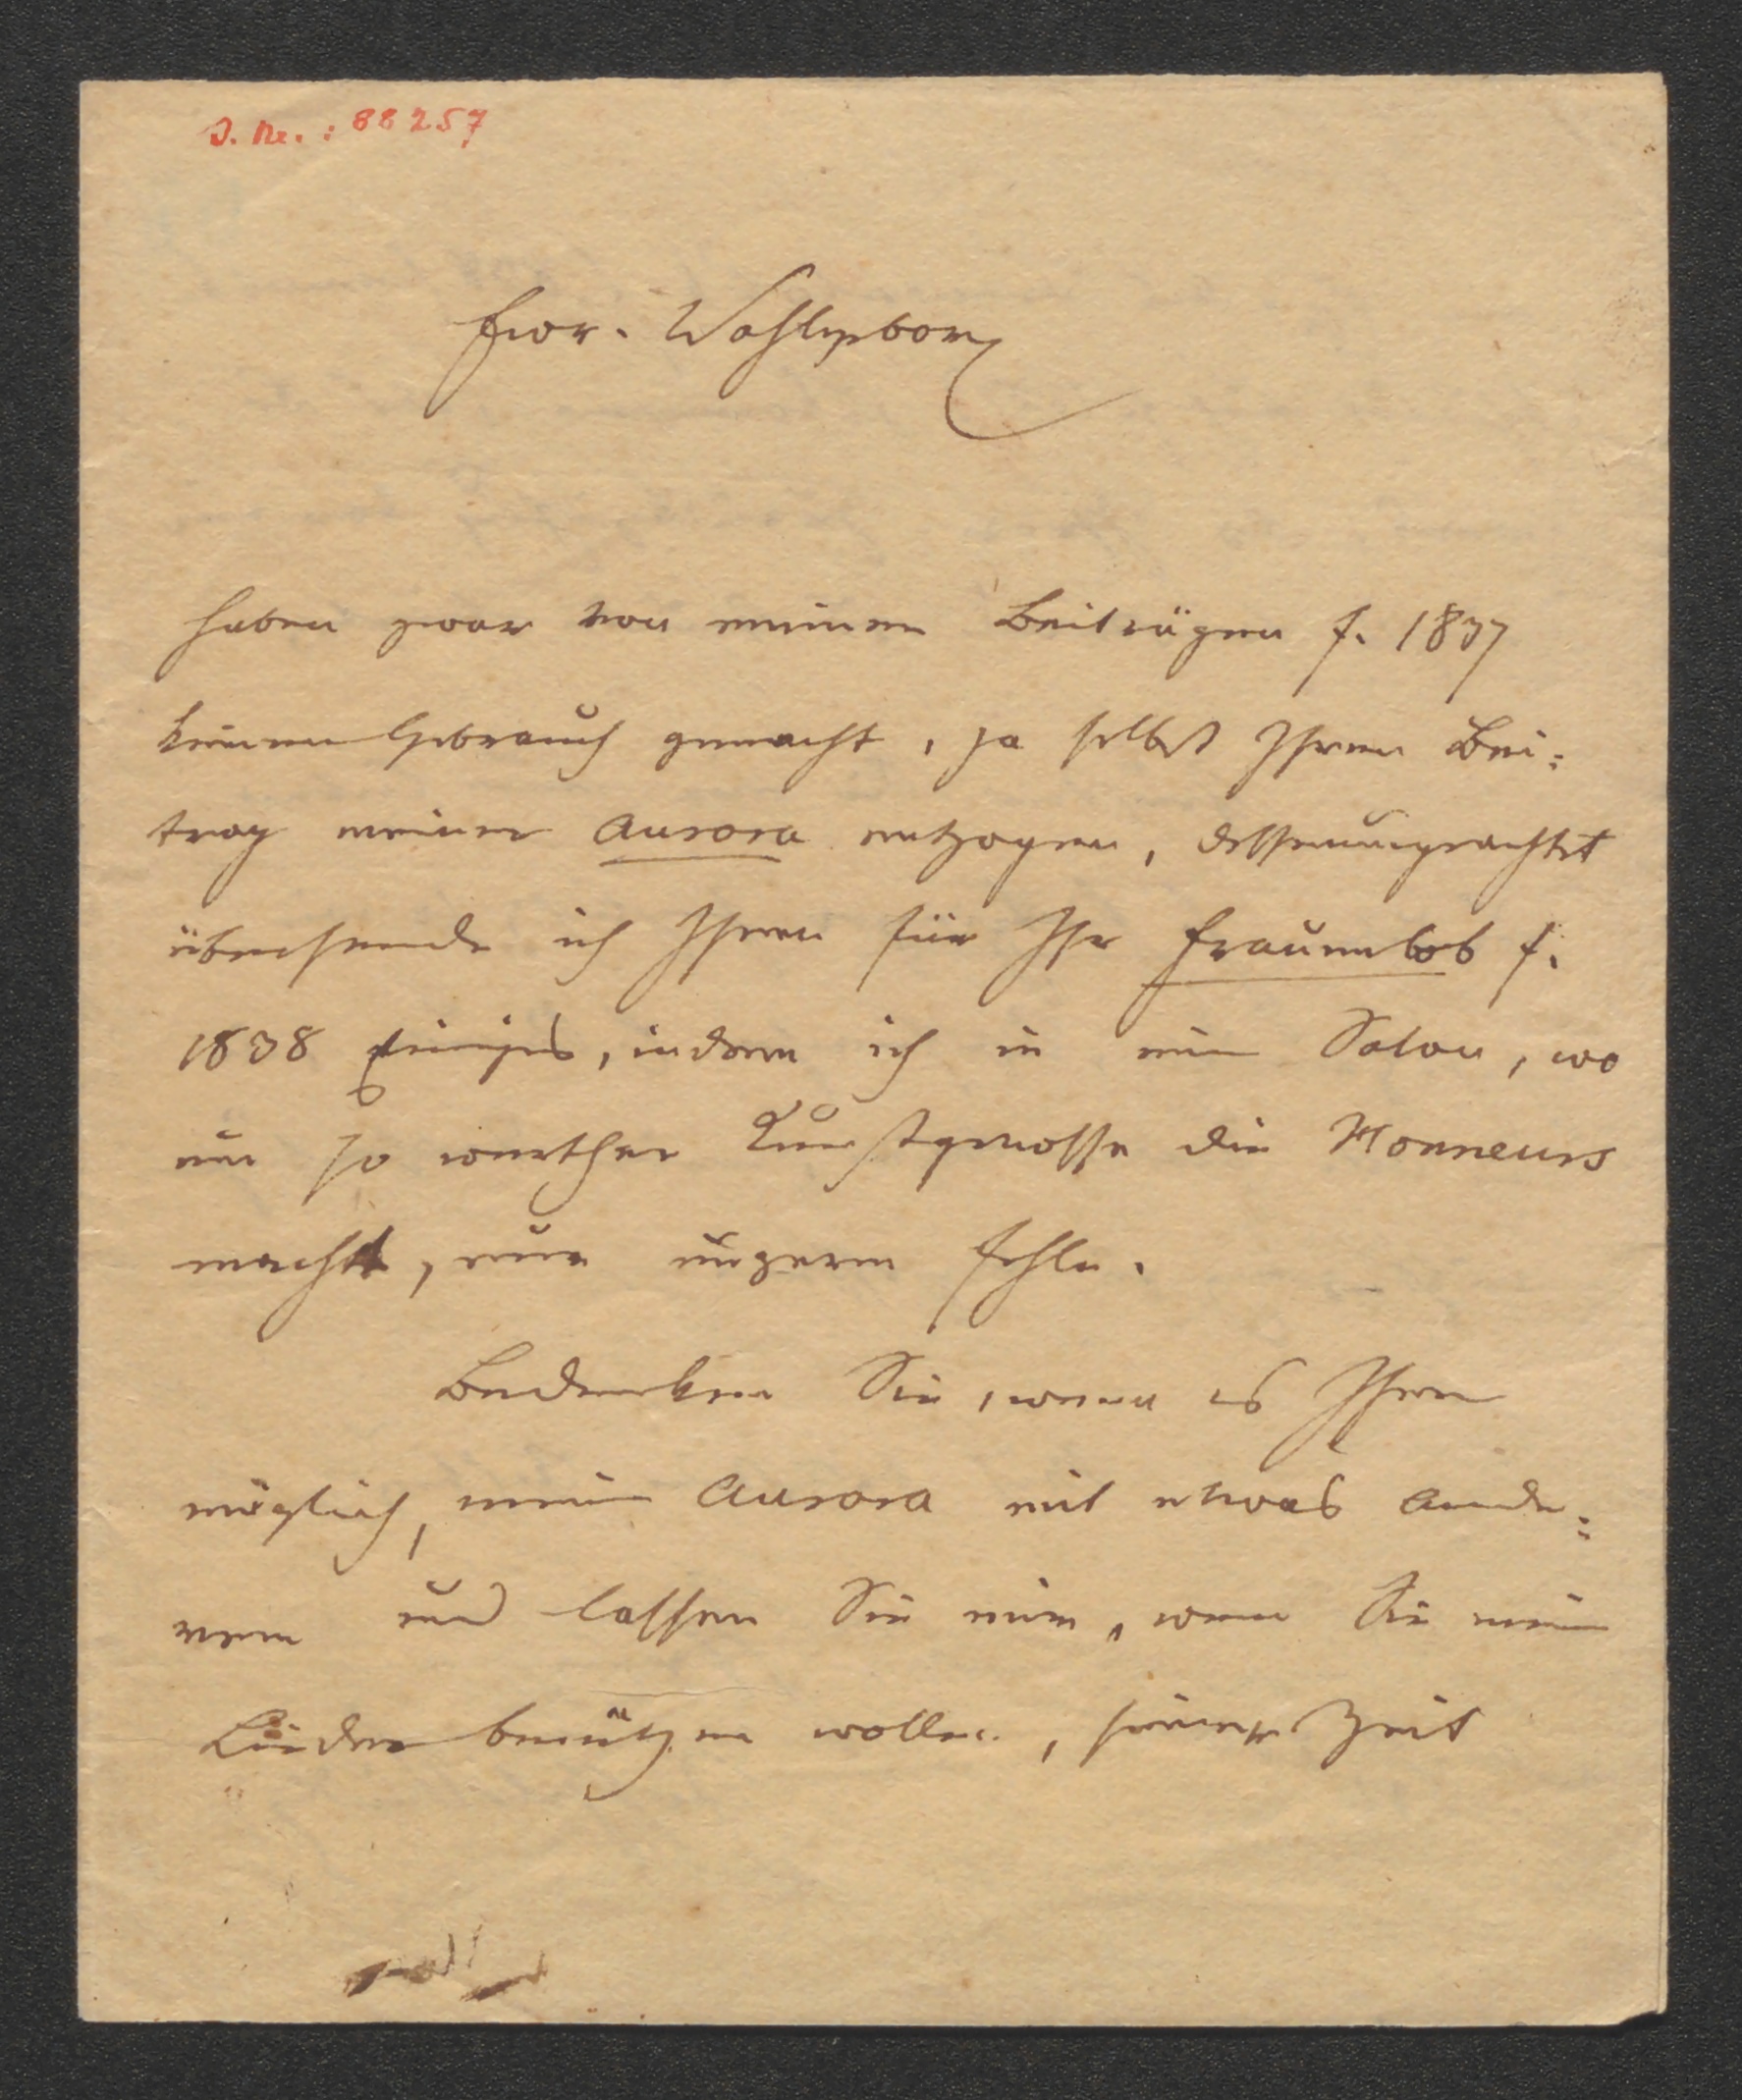 J. Nr.: 88257
Euer. Wohlgeborn
haben zwar von meinen Beiträgen f. 1837
keinen Gebrauch gemacht, ja selbst Ihren Bei:
trag meiner Aurora entzogen, dessenungeachtet
übersende ich Ihnen für Ihr Frauenlob f.
1838 Einiges, indem ich in ein Salon, wo
ein so werther Kunstgenosse die Honneurs
macht, nur ungern fehle.
Bedenken Sie, wenn es Ihnen
möglich, meine Aurora mit etwas Ande:
rem und lassen Sie mir, wenn Sie meine
Lieder benützen wollen, seiner Zeit